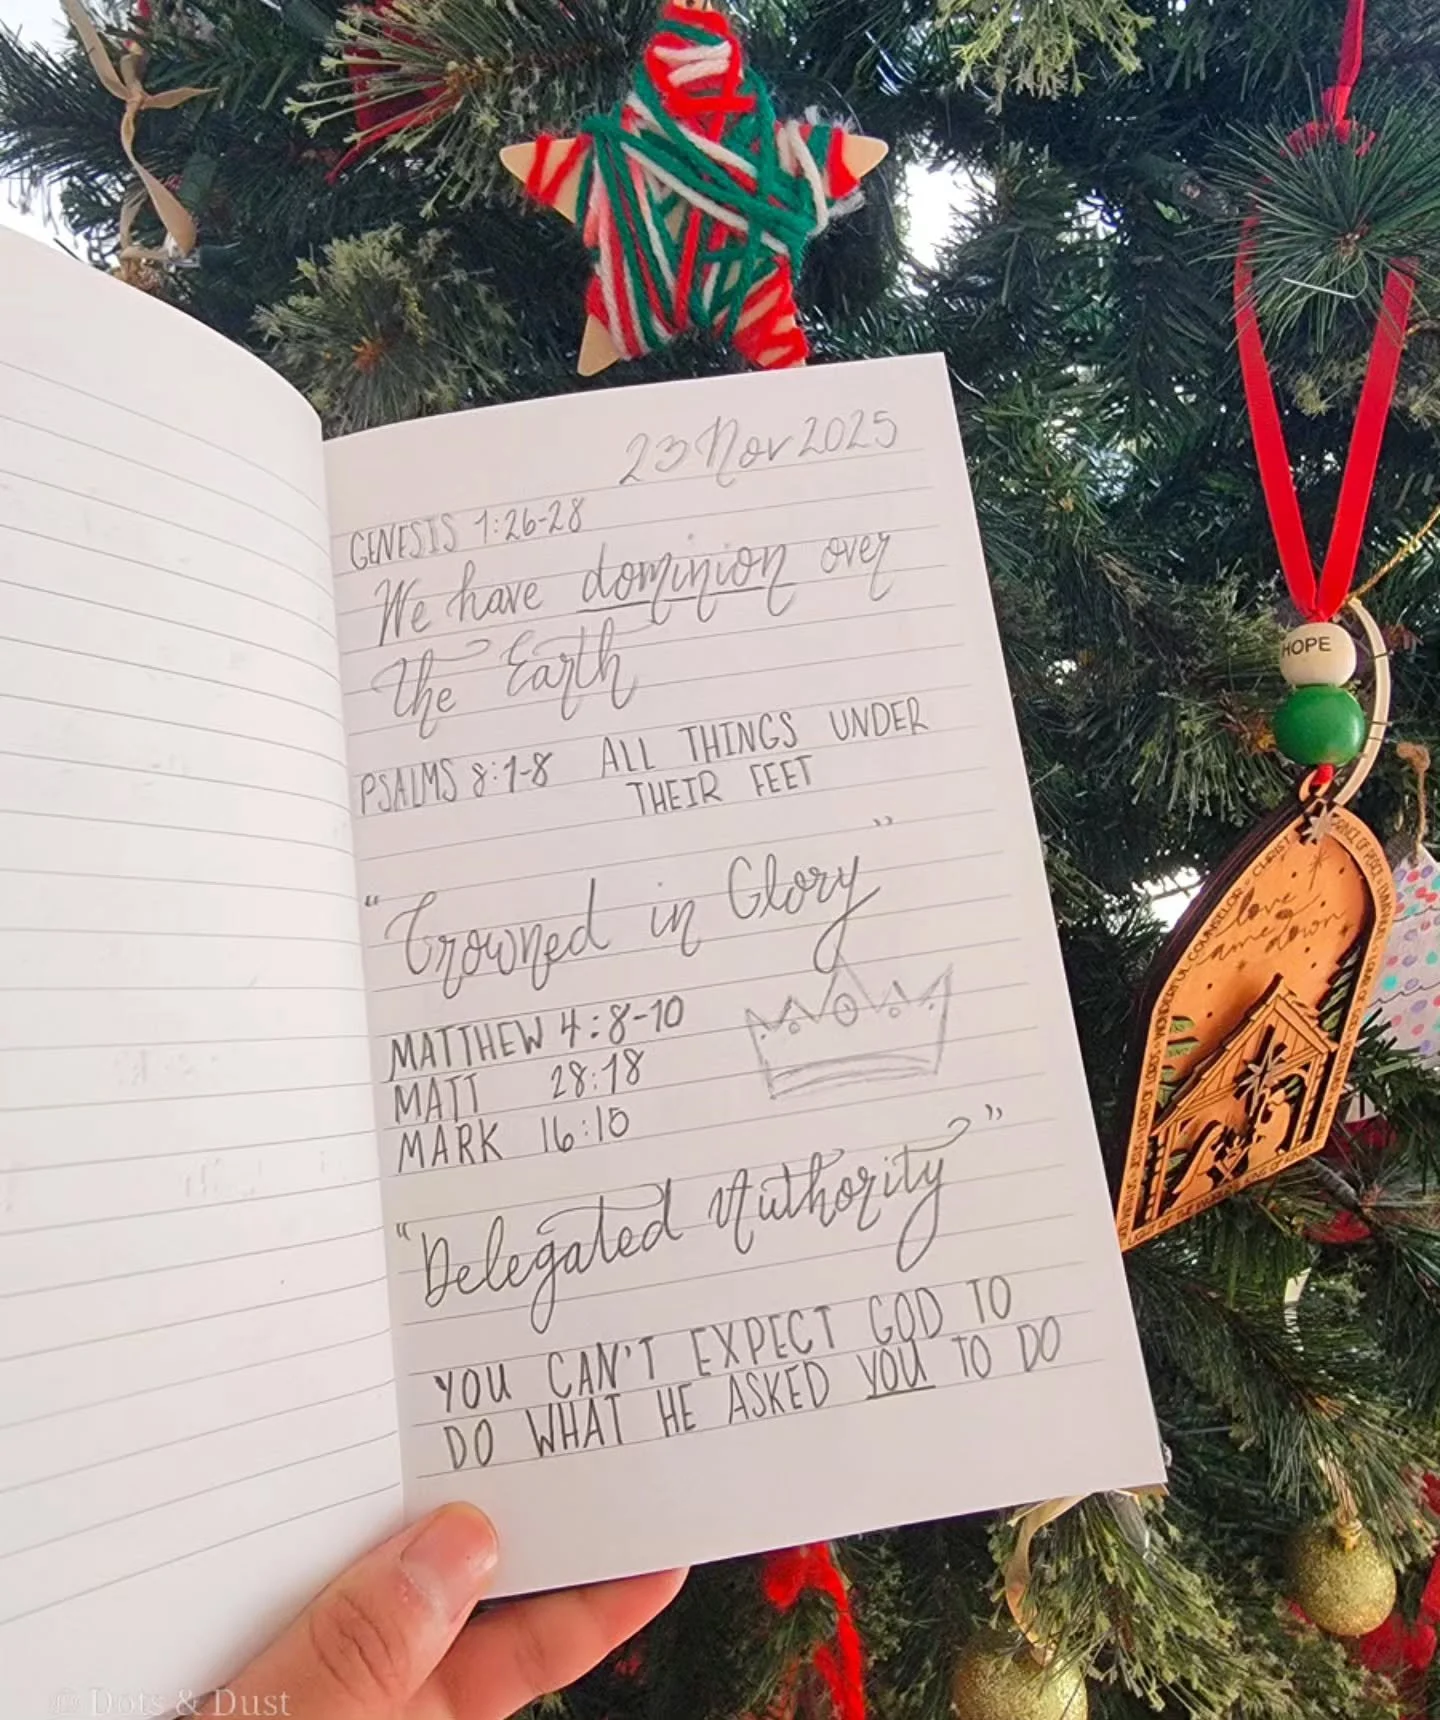 23 Nov 2025
GENESIS 1:26-28
We have dominion over
the Earth
PSALMS 8:1-8 ALL THINGS UNDER
THEIR FEET
"Crowned in Glory"
MATTHEW 4:8-10
MATT 28:18
MARK 16:15
"Delegated Authority"
YOU CAN'T EXPECT GOD TO
DO WHAT HE ASKED YOU TO DO
HOPE
love
came down
WONDERFUL COUNSELOR
CHRIST
PRINCE OF PEACE
© Dots & Dust